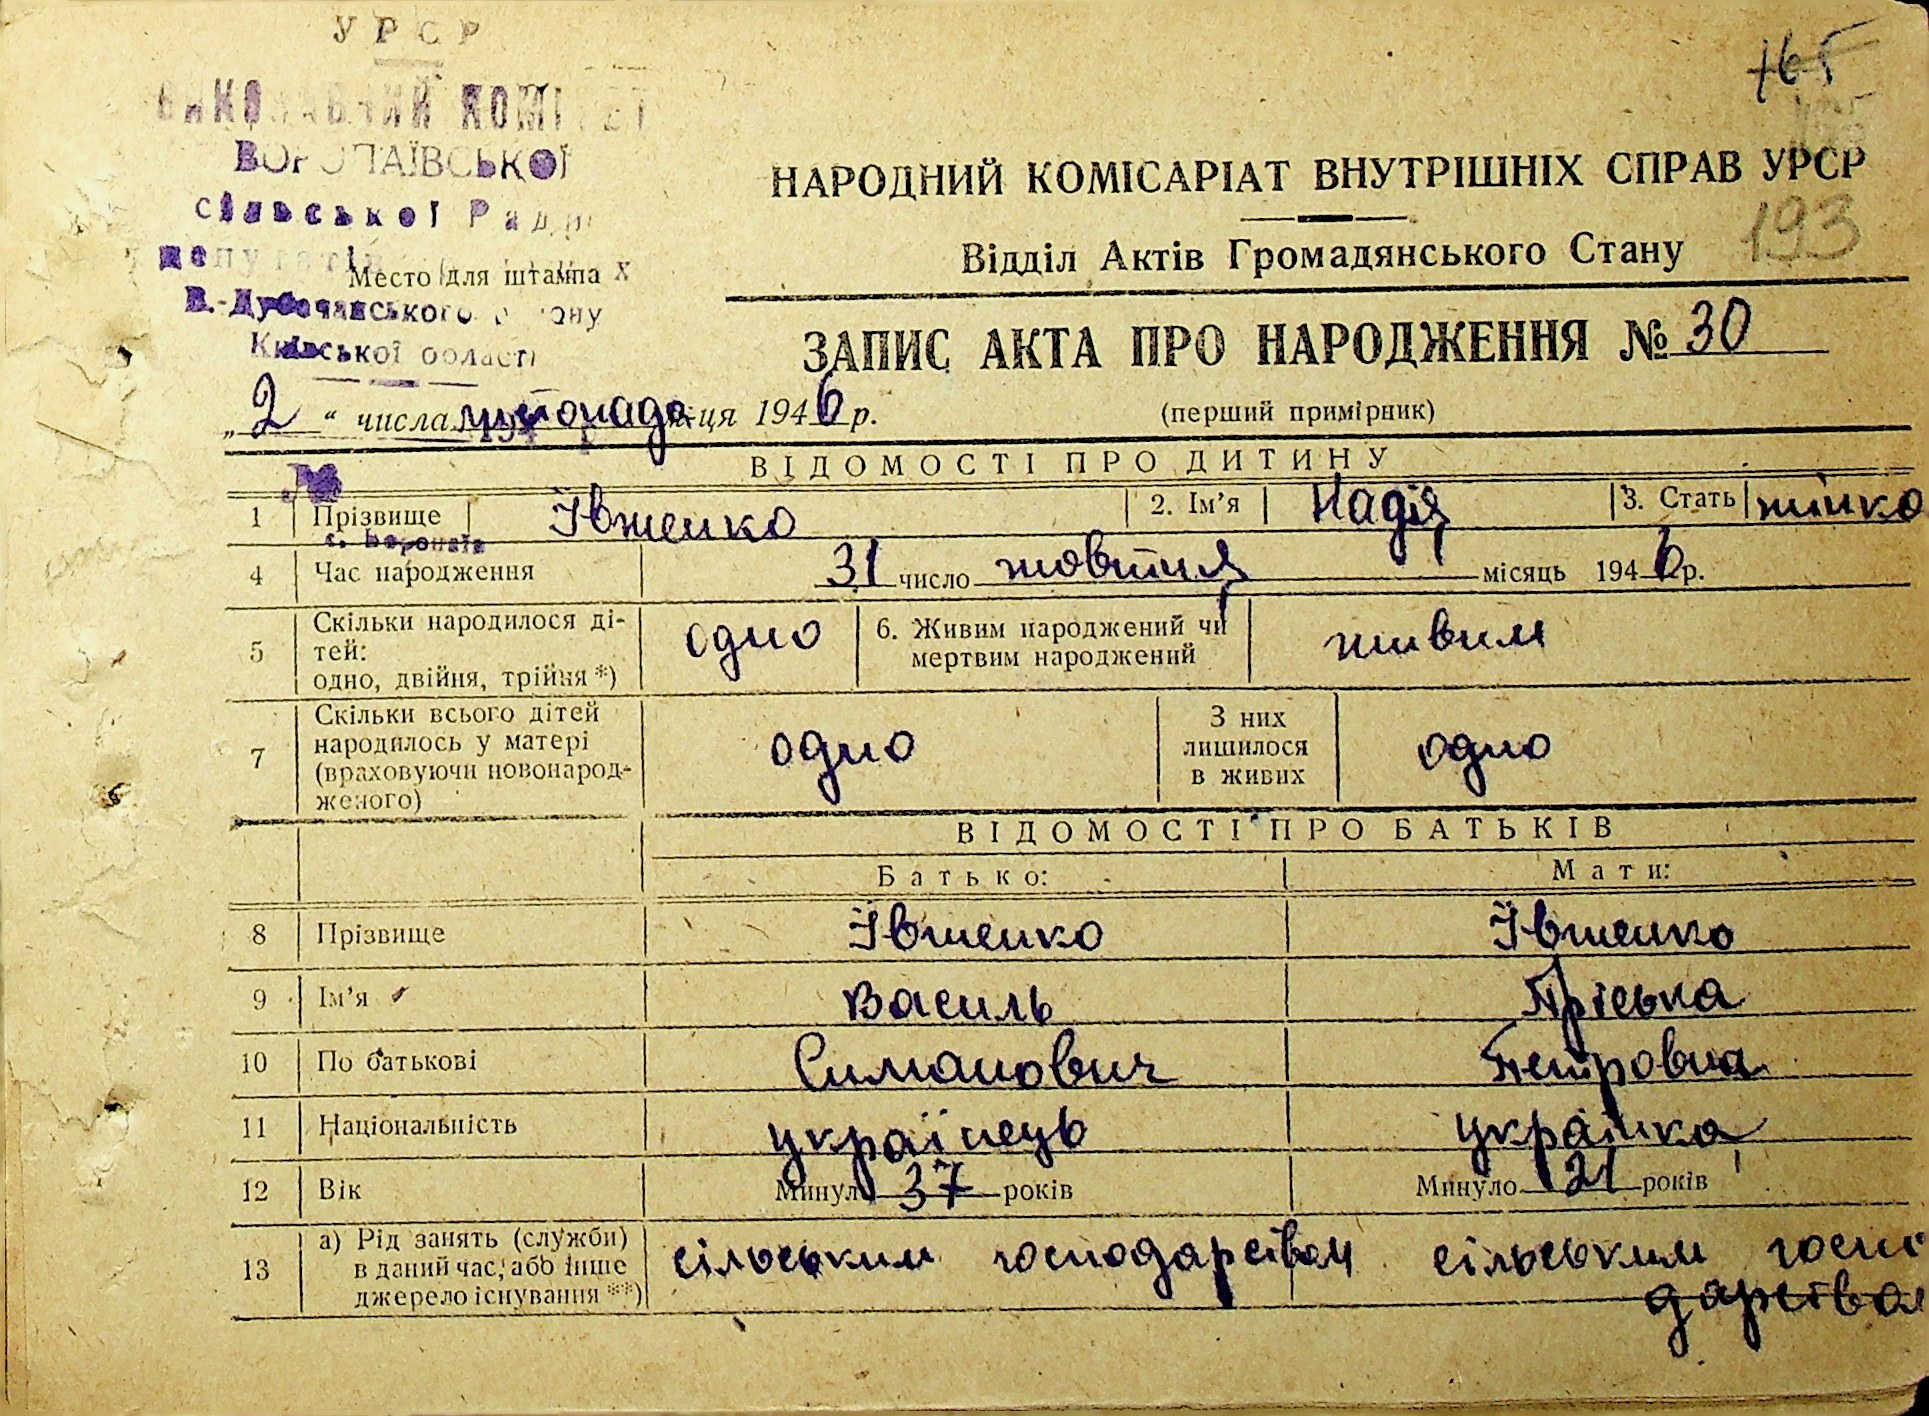 УРСР
ВИКОНАВЧИЙ КОМІТЕТ
ВОРОПАЇВСЬКОЇ
сільської Ради
депутатів
Место для штампа
В.-Дубечанського району
Київської області
165
193
НАРОДНИЙ КОМІСАРІАТ ВНУТРІШНІХ СПРАВ УРСР
Відділ Актів Громадянського Стану
ЗАПИС АКТА ПРО НАРОДЖЕННЯ № 30
„ 2 “ числа листопада м-ця 1946 р.
(перший примірник)
ВІДОМОСТІ ПРО ДИТИНУ
1 Прізвище Ївженко 2. Ім'я Надія 3. Стать жінко
с. Воропаїв
4 Час народження 31 число жовтня місяць 1946 р.
5 Скільки народилося ді-
тей:
одно, двійня, трійня *) одно 6. Живим народжений чи
мертвим народжений живим
7 Скільки всього дітей
народилось у матері
(враховуючи новонарод-
женого) одно З них
лишилося
в живих одно
ВІДОМОСТІ ПРО БАТЬКІВ
Батько: Мати:
8 Прізвище Ївженко Ївженко
9 Ім'я Василь Пріська
10 По батькові Симанович Петровна
11 Національність українець українка
12 Вік Минуло 37 років Минуло 21 років
13 а) Рід занять (служби)
в даний час, або інше
джерело існування **) сільським господарством сільським госпо
дарством